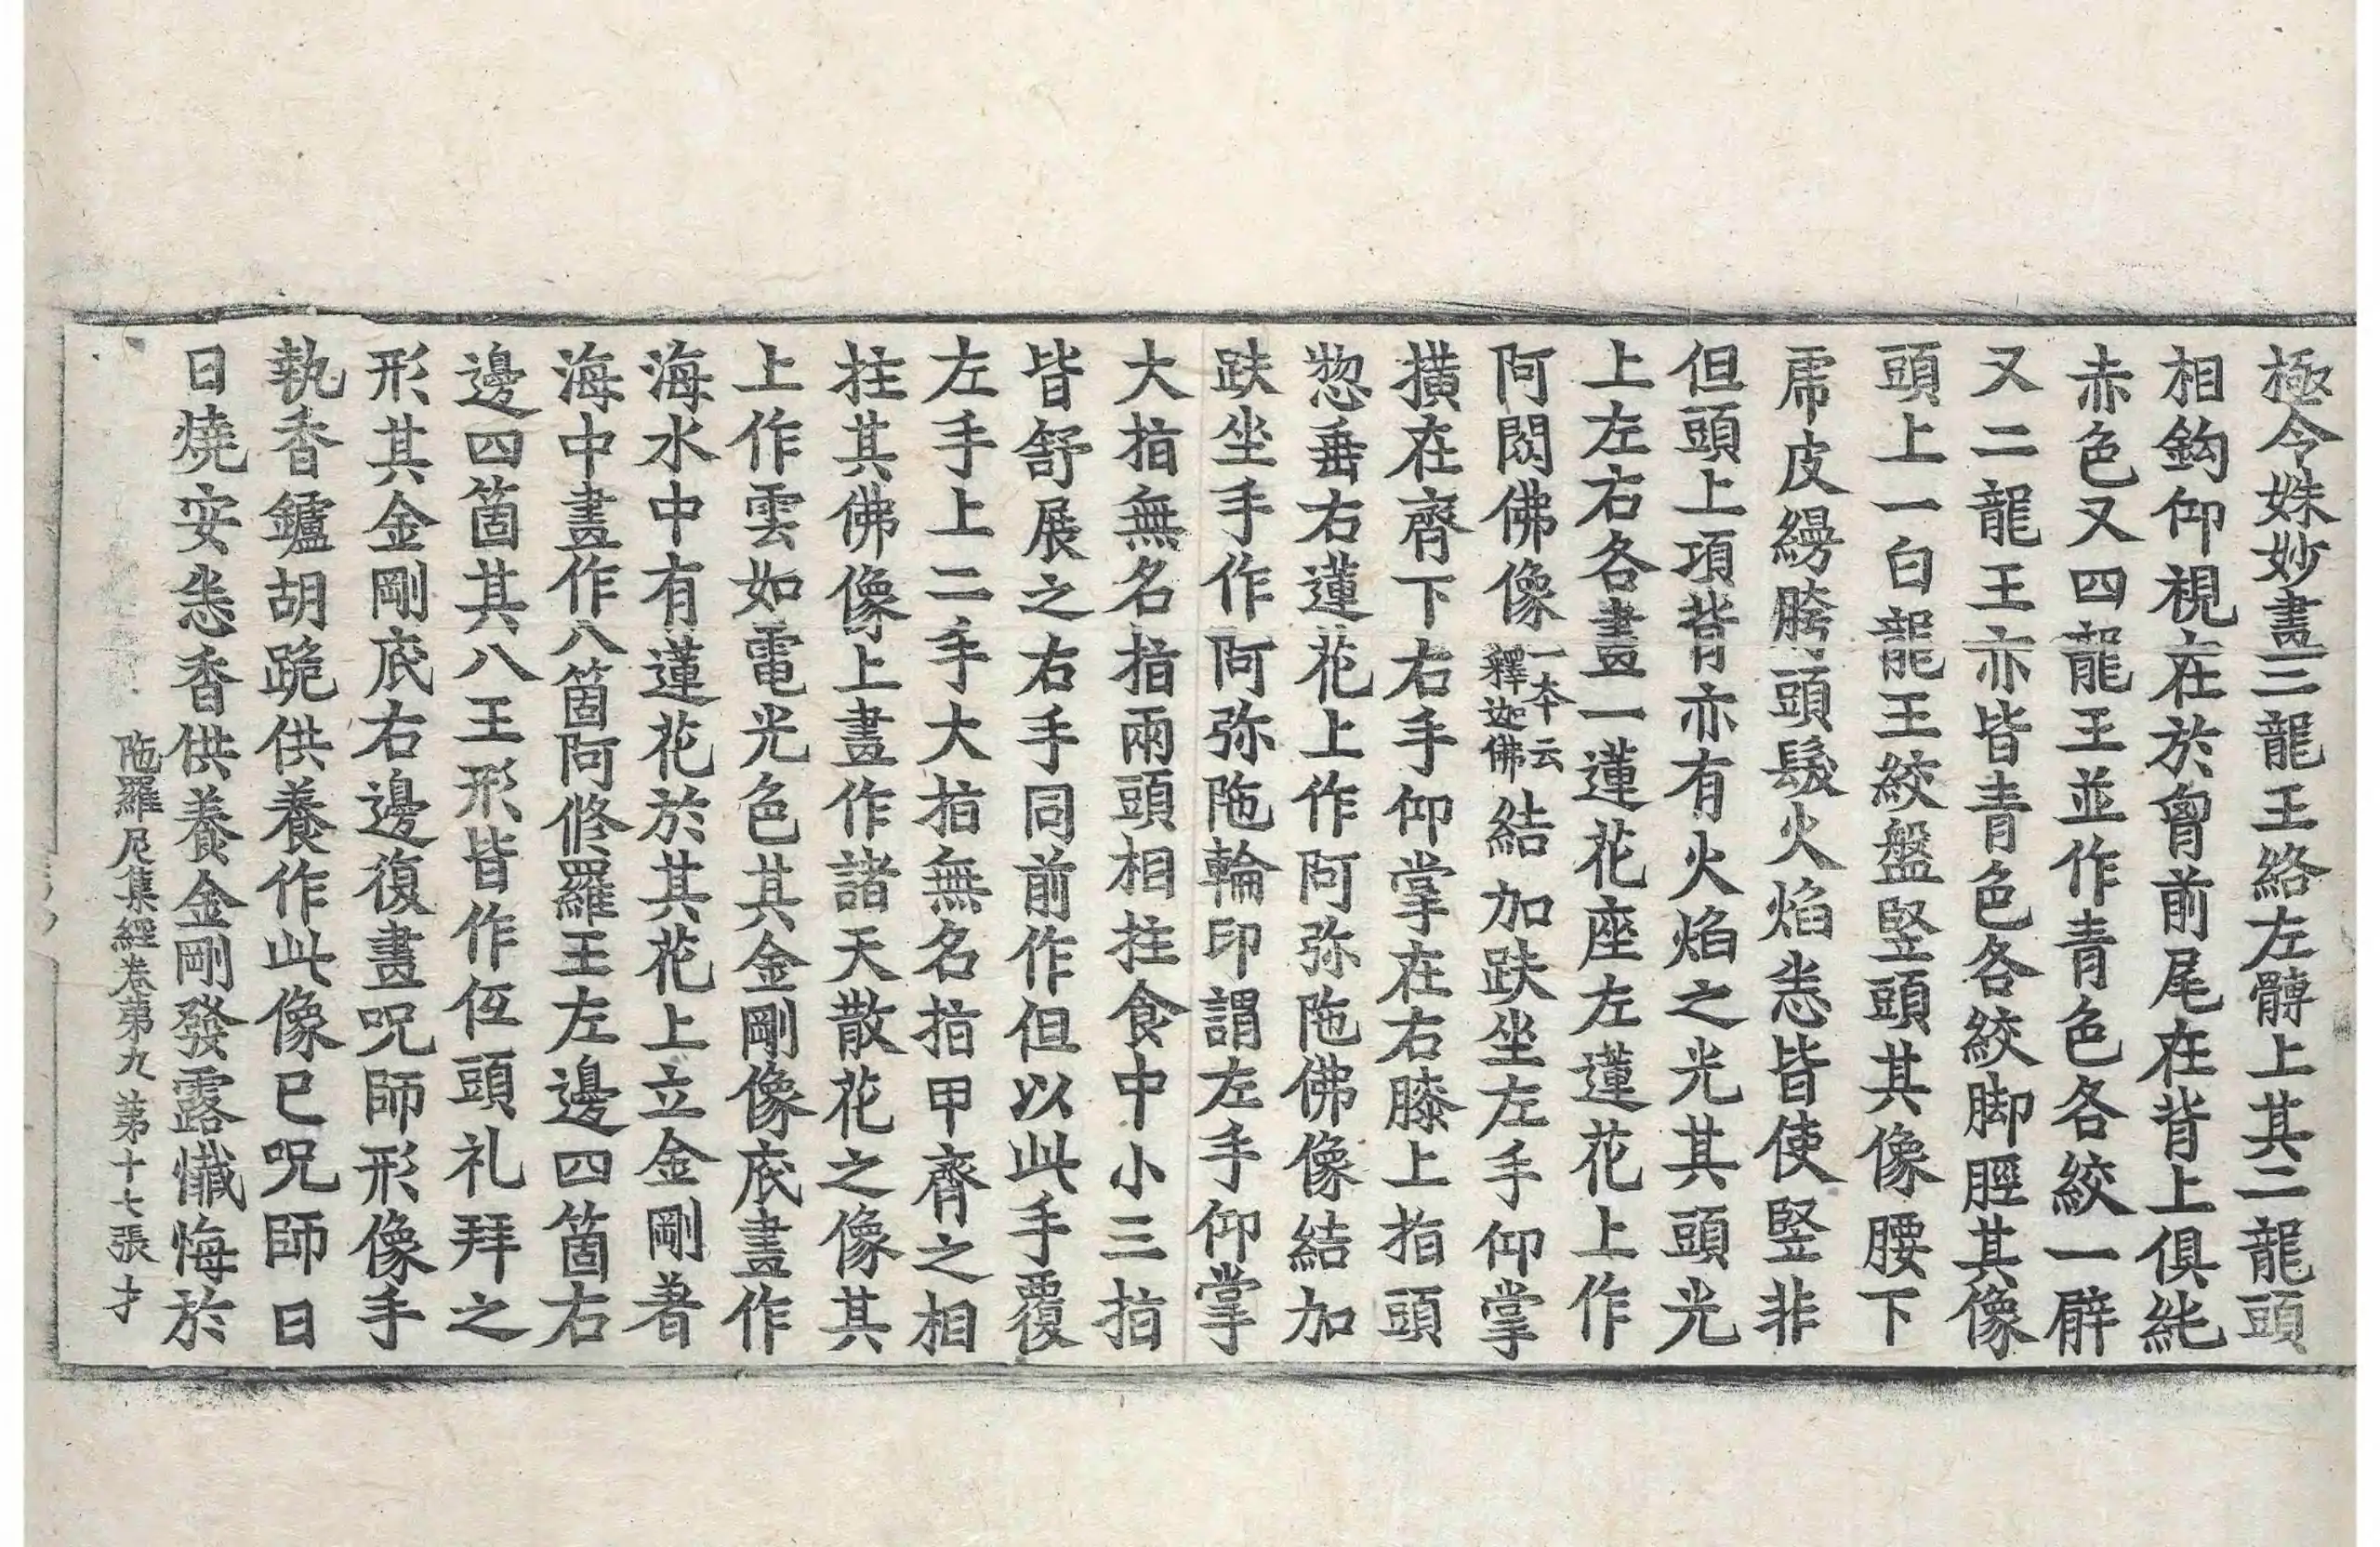 極令姝妙畫三龍王絡左髆上其二龍頭
相鈎仰視在於胷前尾在背上俱純
赤色又四龍王並作青色各絞一臂
又二龍王亦皆青色各絞脚脛其像
頭上一白龍王絞盤竪頭其像腰下
虎皮縵胯頭髮火焰悉皆使竪非
但頭上項背亦有火焰之光其頭光
上左右各畫一蓮花座左蓮花上作
阿閦佛像一本云釋迦佛結加趺坐左手仰掌
横在齊下右手仰掌在右膝上指頭
惣垂右蓮花上作阿弥陁佛像結加
趺坐手作阿弥陁輪印謂左手仰掌
大指無名指兩頭相拄食中小三指
皆舒展之右手同前作但以此手覆
左手上二手大指無名指甲齊之相
拄其佛像上畫作諸天散花之像其
上作雲如電光色其金剛像底畫作
海水中有蓮花於其花上立金剛著
海中畫作八箇阿修羅王左邊四箇右
邊四箇其八王形皆作低頭礼拜之
形其金剛底右邊復畫呪師形像手
執香鑪胡跪供養作此像已呪師日
日燒安悉香供養金剛發露懺悔於
陁羅尼集經卷第九 第十七張 才